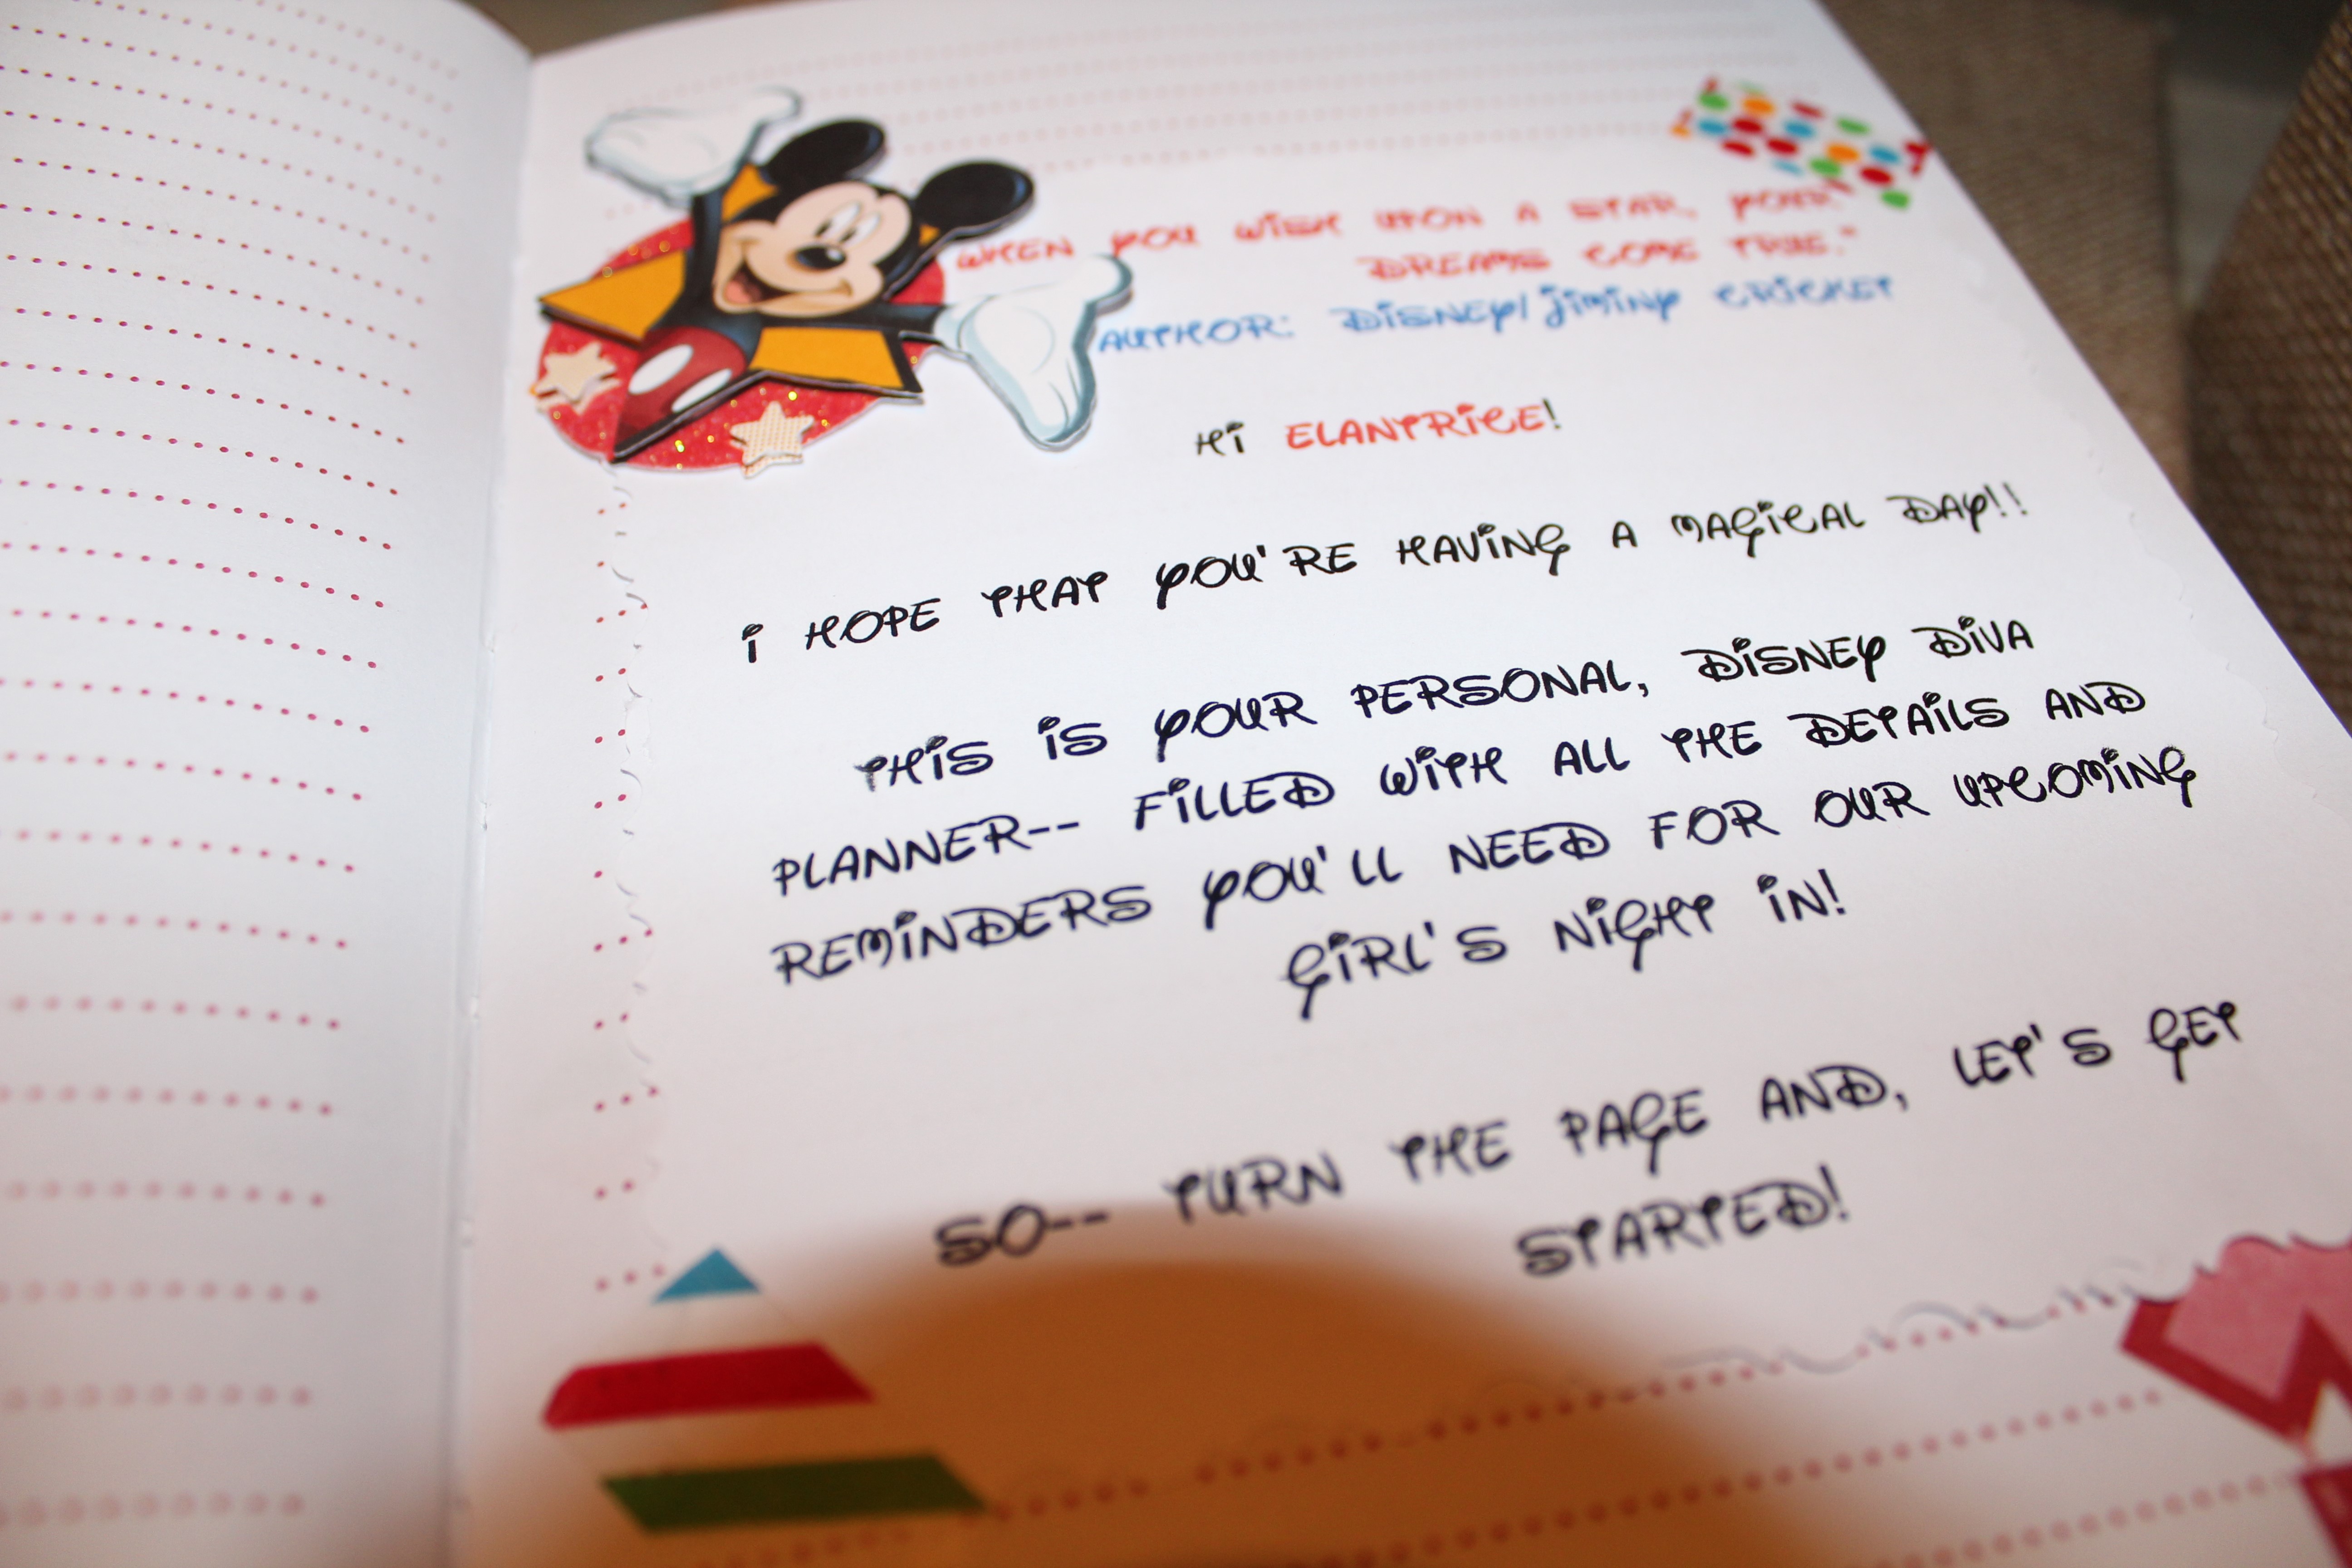 WHEN YOU WISH UPON A STAR, YOUR
DREAMS COME TRUE."
AUTHOR: DISNEY/JIMINY CRICKET
HI ELANTRICE!
I HOPE THAT YOU'RE HAVING A MAGICAL DAY!!
THIS IS YOUR PERSONAL, DISNEY DIVA
PLANNER-- FILLED WITH ALL THE DETAILS AND
REMINDERS YOU'LL NEED FOR OUR UPCOMING
GIRL'S NIGHT IN!
SO-- TURN THE PAGE AND, LET'S GET
STARTED!